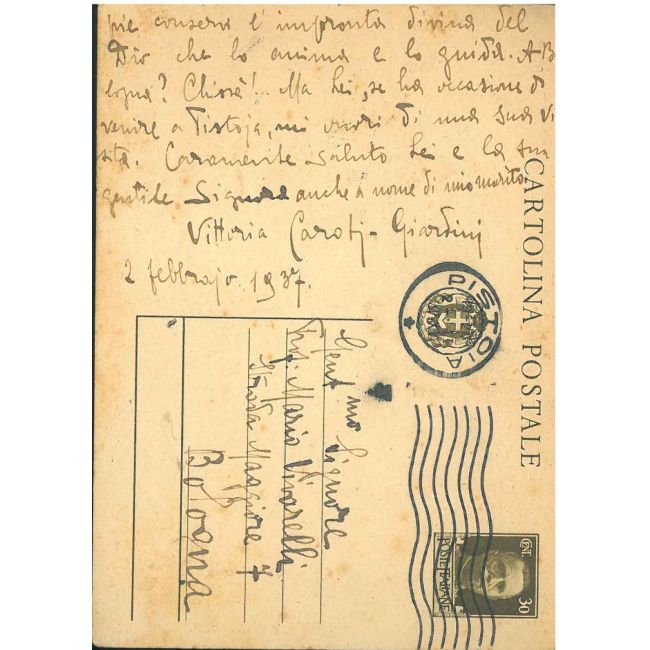 pie conserva l'impronta divina del
Dio che lo anima e lo guida. A Bo
logna? Chissà!... Ma Lei, se ha occasione di
venire a Pistoja, mi onori di una sua vi
sita. Caramente saluto Lei e la sua
gentile Signora anche a nome di mio marito.
Vittoria Caroti-Giardini
2 febbrajo 1937.
CARTOLINA POSTALE
PISTOIA
Gent mo Signore
Prof. Mario Vivarelli
Strada Maggiore 7
Bologna
POSTE ITALIANE
CENT.
30